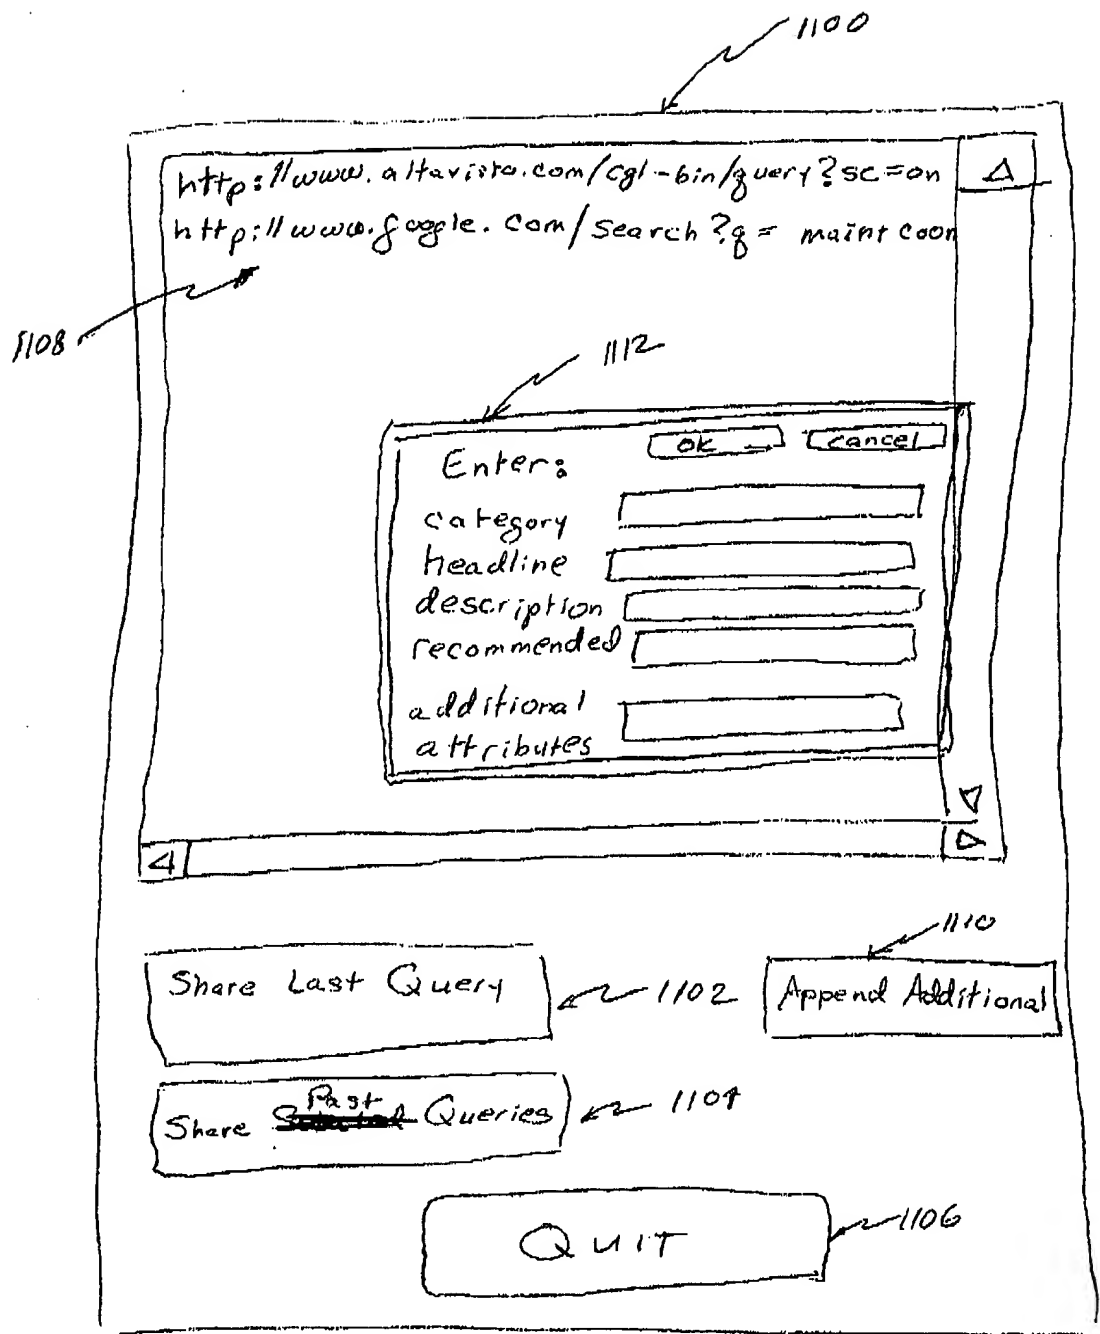 1100
http://www.altavista.com/cgi-bin/query?sc=on
http://www.google.com/search?q= maint coon
1108
1112
Enter:
ok
cancel
category
headline
description
recommended
additional
attributes
1110
Share Last Query
1102
Append Additional
Past
Share Queries
1104
QUIT
1106